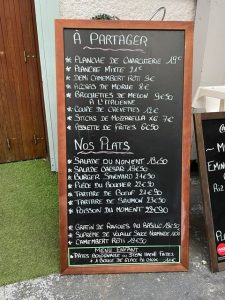 À PARTAGER
* PLANCHE DE CHARCUTERIE 19€
* PLANCHE MIXTE 21€
* DEMI CAMEMBERT RÔTI 9€
* ACCRAS DE MORUE 8€
* BROCHETTES DE MELON 9€50
À L'ITALIENNE
* COUPE DE CREVETTES 12€
* STICKS DE MOZZARELLA x6 7€
* ASSIETTE DE FRITES 6€50
NOS PLATS
* SALADE DU MOMENT 18€50
* SALADE CESAR 19€50
* BURGER SAVOYARD 21€50
* PIÈCE DU BOUCHER 22€50
* TARTARE DE BŒUF 21€50
* TARTARE DE SAUMON 23€50
* POISSON DU MOMENT 22€50
* GRATIN DE RAVIOLES AU BASILIC 18€50
* SUPRÊME DE VOLAILLE SAUCE
* CAMEMBERT RÔTI 19€50
MENU ENFANT
* PÂTES BOLOGNAISE OU STEAK HACHÉ FRITES
+ 1 BOULE DE GLACE AU CHOIX